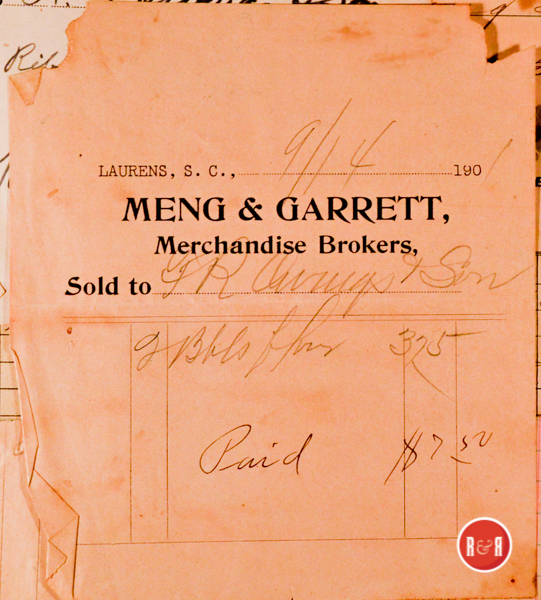 Rib
LAURENS, S. C., 9/14 1901
MENG & GARRETT,
Merchandise Brokers,
Sold to & Son
2 Bbls flour 3 75
Paid $7.50
R&R